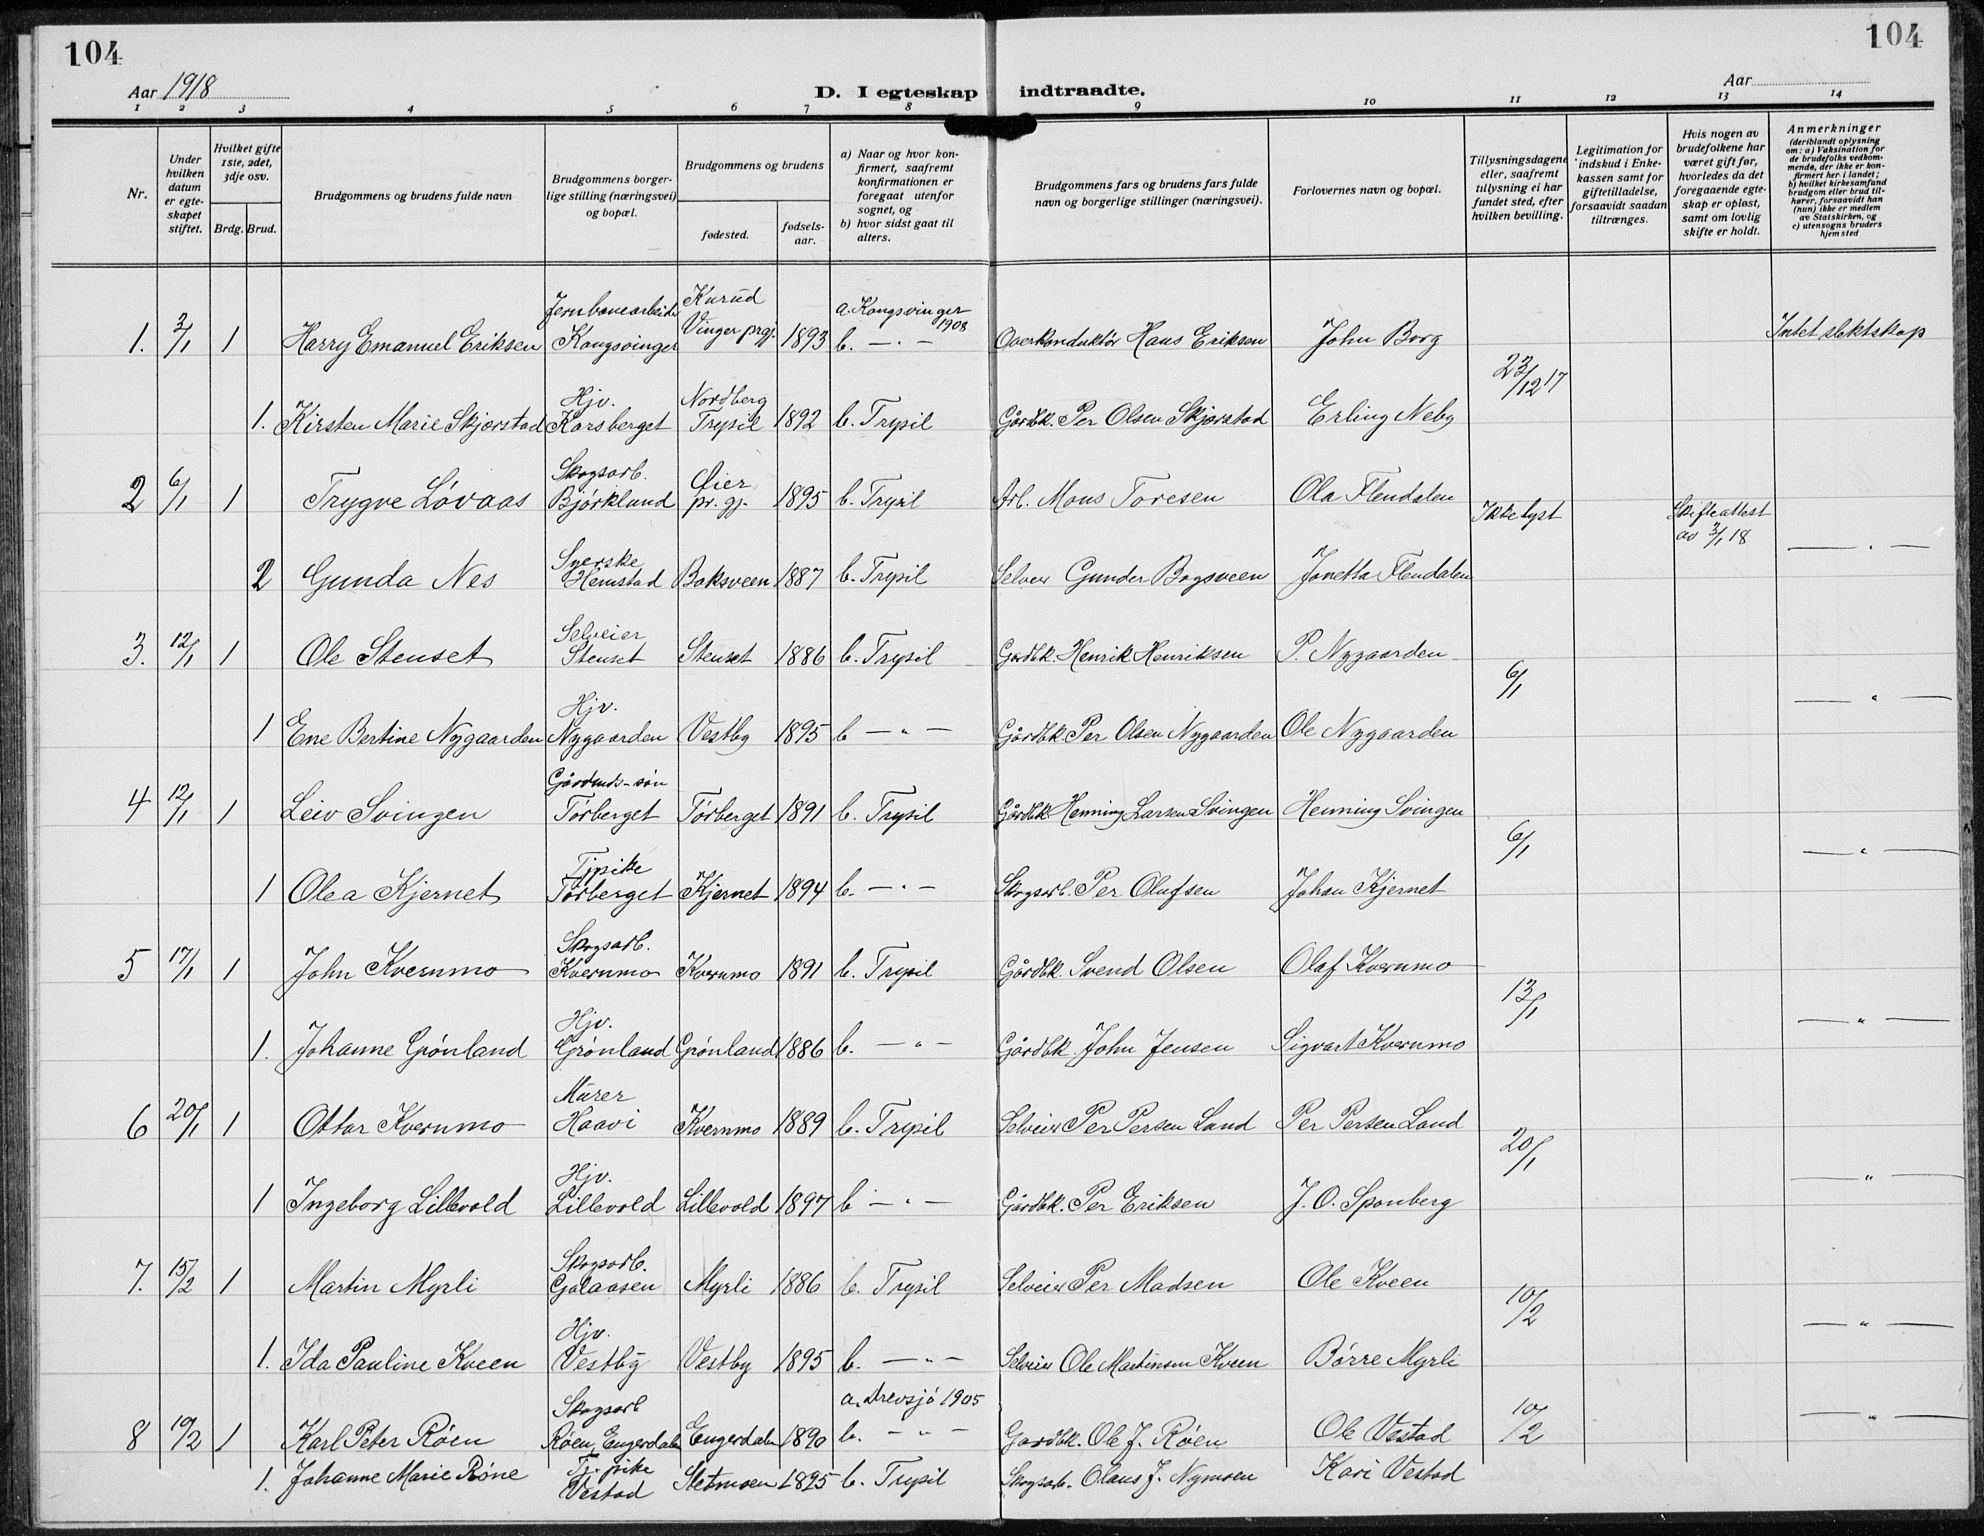 104
104
Aar 1918
D. I egteskap indtraadte.
Aar
1 2 3 4 5 6 7 8 9 10 11 12 13 14
Nr.
Under hvilken datum er egteskapet stiftet.
Hvilket gifte 1ste, 2det, 3dje osv.
Brdg. Brud.
Brudgommens og brudens fulde navn
Brudgommens borgerlige stilling (næringsvei) og bopæl.
Brudgommens og brudens
fødested.
fødselsaar.
a) Naar og hvor konfirmert, saafremt konfirmationen er foregaat utenfor sognet, og
b) hvor sidst gaat til alters.
Brudgommens fars og brudens fars fulde navn og borgerlige stillinger (næringsvei).
Forlovernes navn og bopæl.
Tillysningsdagene eller, saafremt tillysning ei har fundet sted, efter hvilken bevilling.
Legitimation for indskud i Enkekassen samt for giftetilladelse, forsaavidt saadan tiltrænges.
Hvis nogen av brudefolkene har været gift før, hvorledes da det foregaaende egteskap er opløst, samt om lovlig skifte er holdt.
Anmerkninger (deriblandt oplysning om: a) Vaksination for de brudefolks vedkommende, der ikke er konfirmert her i landet; b) hvilket kirkesamfund brudgom eller brud tilhører, forsaavidt han (hun) ikke er medlem av Statskirken, og c) utensogns bruders hjemsted
1. 2/1 1 Harry Emanuel Eriksen Jernbanearbeider Kongsvinger Kurud Vinger prgj. 1893 a. Kongsvinger 1908 b. — " — Overkonduktør Hans Eriksen John Borg Intet slektskap
23/12 17
1. Kirsten Marie Skjørstad Hjv. Korsberget Nordberg Trysil 1892 b. Trysil Gårdbk. Per Olsen Skjørstad Erling Neby
2 6/1 1 Trygve Lóvaas Skogsarb. Bjórkland Øier pr. gj. 1895 b. Trysil Arb. Mons Toresen Ola Flendalen
Ikke lyst Skifteattest av 3/1 18 — " —
2 Gunda Nes Snerske Hemstad Baksveen 1887 b. Trysil Selveier Gunder Bagsveen Jonetta Flendalen
3. 12/1 1 Ole Stenset Selveier Stenset Stenset 1886 b. Trysil Gardbk. Henrik Henriksen P. Nygaarden
6/1 — " —
1 Ene Bertine Nygaarden Hjv. Nygaarden Vestby 1895 b — " — Gårdbk. Per Olsen Nygaarden Ole Nygaarden
4 12/1 1 Leiv Svingen Tórberget Tórberget 1891 b. Trysil Gårdbk. Henning Larsen Svingen Henning Svingen
6/1 — " —
1 Olea Kjernet Tjpike Tórberget Kjernet 1894 b. — " — Skogsarb. Per Olufsen Johan Kjernet
5 17/1 1 John Kvernmo Skogsarb. Kvernmo Kvernmo 1891 b. Trysil Gårdbk. Svend Olsen Olaf Kvernmo
13/1 — " —
1. Johanne Grónland Hjv. Grónland Grónland 1886 b. — " — Gårdbk. John Jensen Sigvart Kvernmo
6 20/1 1 Ottar Kvernmo Murer Haavi Kvernmo 1889 b. Trysil Selveier Per Persen Land Per Persen Land
20/1 — " —
1 Ingeborg Lillevold Hjv. Lillevold Lillevold 1897 b — " — Gårdbk. Per Eriksen J. O. Sponberg
7. 15/2 1 Martin Myrli Skogsarb. Galaasen Myrli 1886 b. Trysil Selveier Per Madsen Ole Kveen
10/2 — " —
1. Ida Pauline Kveen Hjv. Vestby Vestby 1895 b. — " — Selveier Ole Martinsen Kveen Børre Myrli
8 19/2 1 Karl Peter Róen Skogsarb Róen, Engerdalen Engerdalen 1890 a. Drevsjó 1905 b. — " — Gardbk. Ole J. Róen Ole Vestad
10/2 — " —
1. Johanne Marie Róne Tj. pike Vestad Sletmoen 1895 b. Trysil Skogsarb. Olaus J. Nymoen Kari Vestad